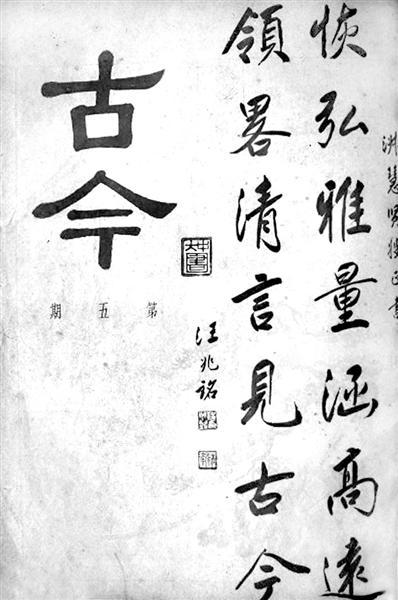 恢弘雅量涵高遠
領畧清言見古今
汪兆銘
古今
第五期